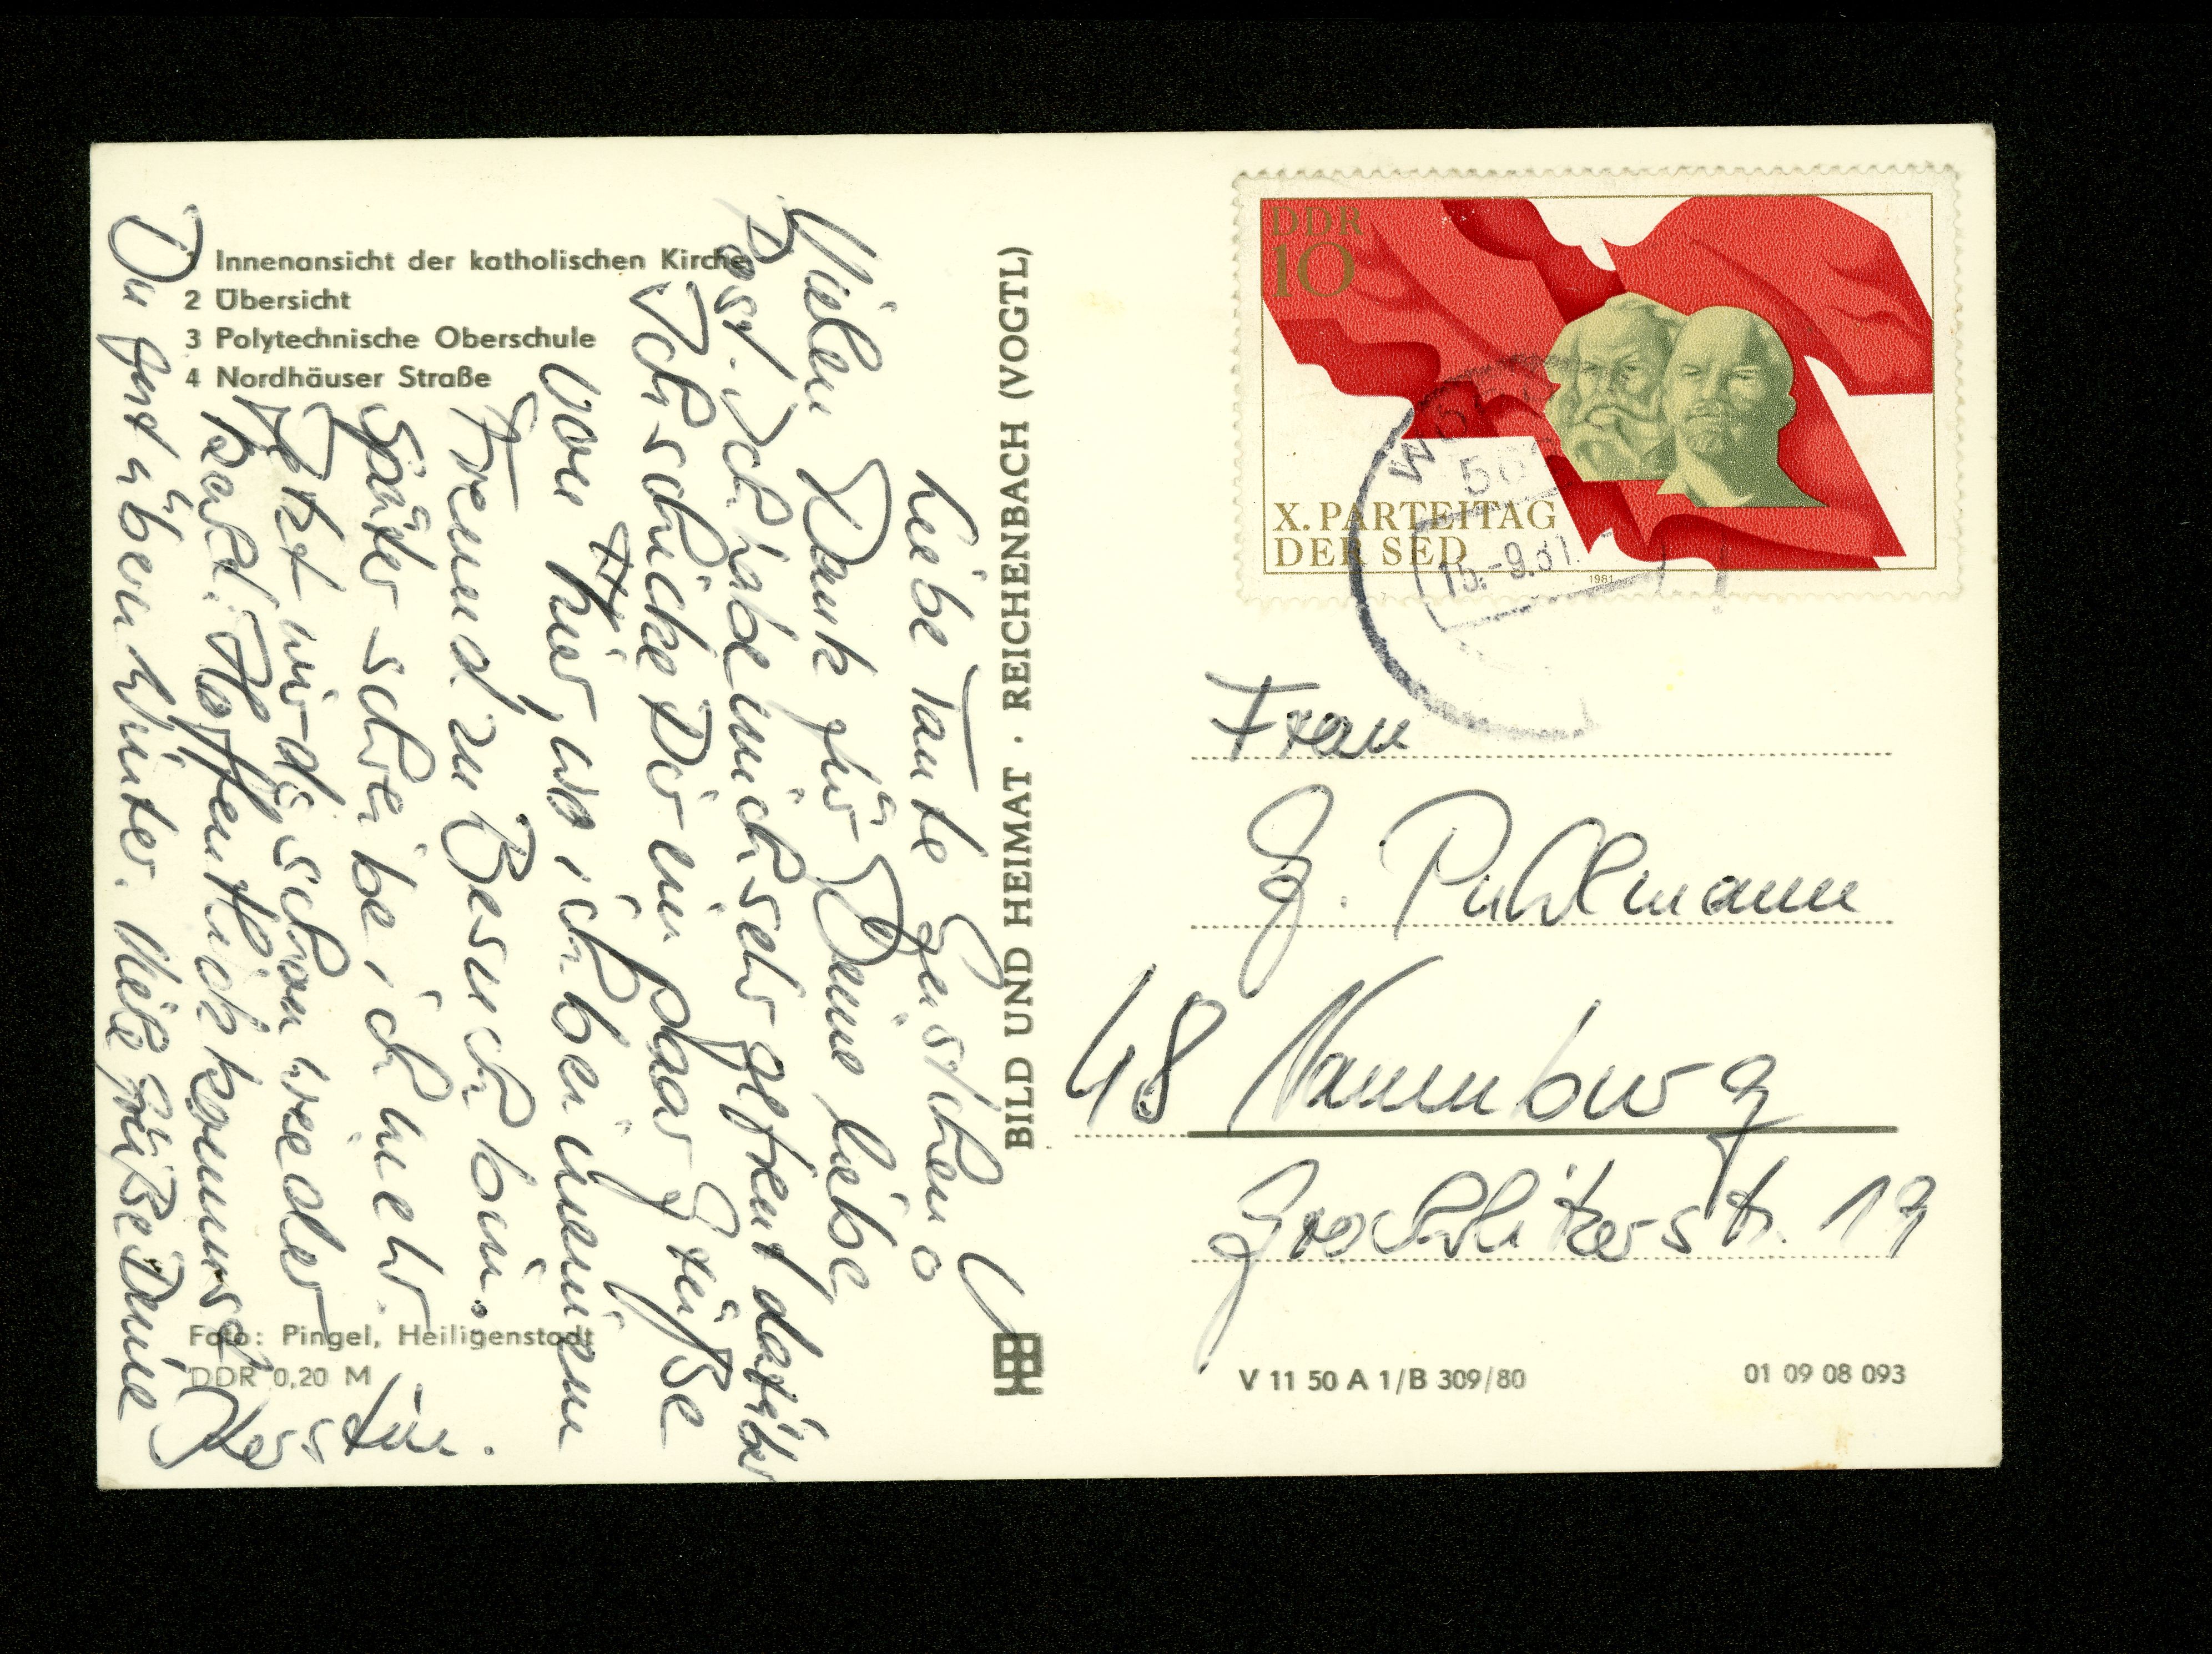 1 Innenansicht der katholischen Kirche
2 Übersicht
3 Polytechnische Oberschule
4 Nordhäuser Straße
Liebe Tante
Vielen Dank für Deine liebe
Post. Ich habe mich sehr gefreut darüber
Ich schicke Dir ein paar Grüße
von hier, wo ich bei meinem
Freund zu Besuch bin.
Später schreibe ich mehr.
Jetzt wird's schon wieder
kalt. Hoffentlich kommst
Du gut übern Winter. Viele Grüße Deine
Kerstin.
Foto: Pingel, Heiligenstadt
DDR 0,20 M
BILD UND HEIMAT · REICHENBACH (VOGTL)
DDR
10
X. PARTEITAG
DER SED
1981
15.-9.81
Frau
G. Puhlmann
48 Naumburg
Grochlitzerstr. 19
V 11 50 A 1/B 309/80
01 09 08 093